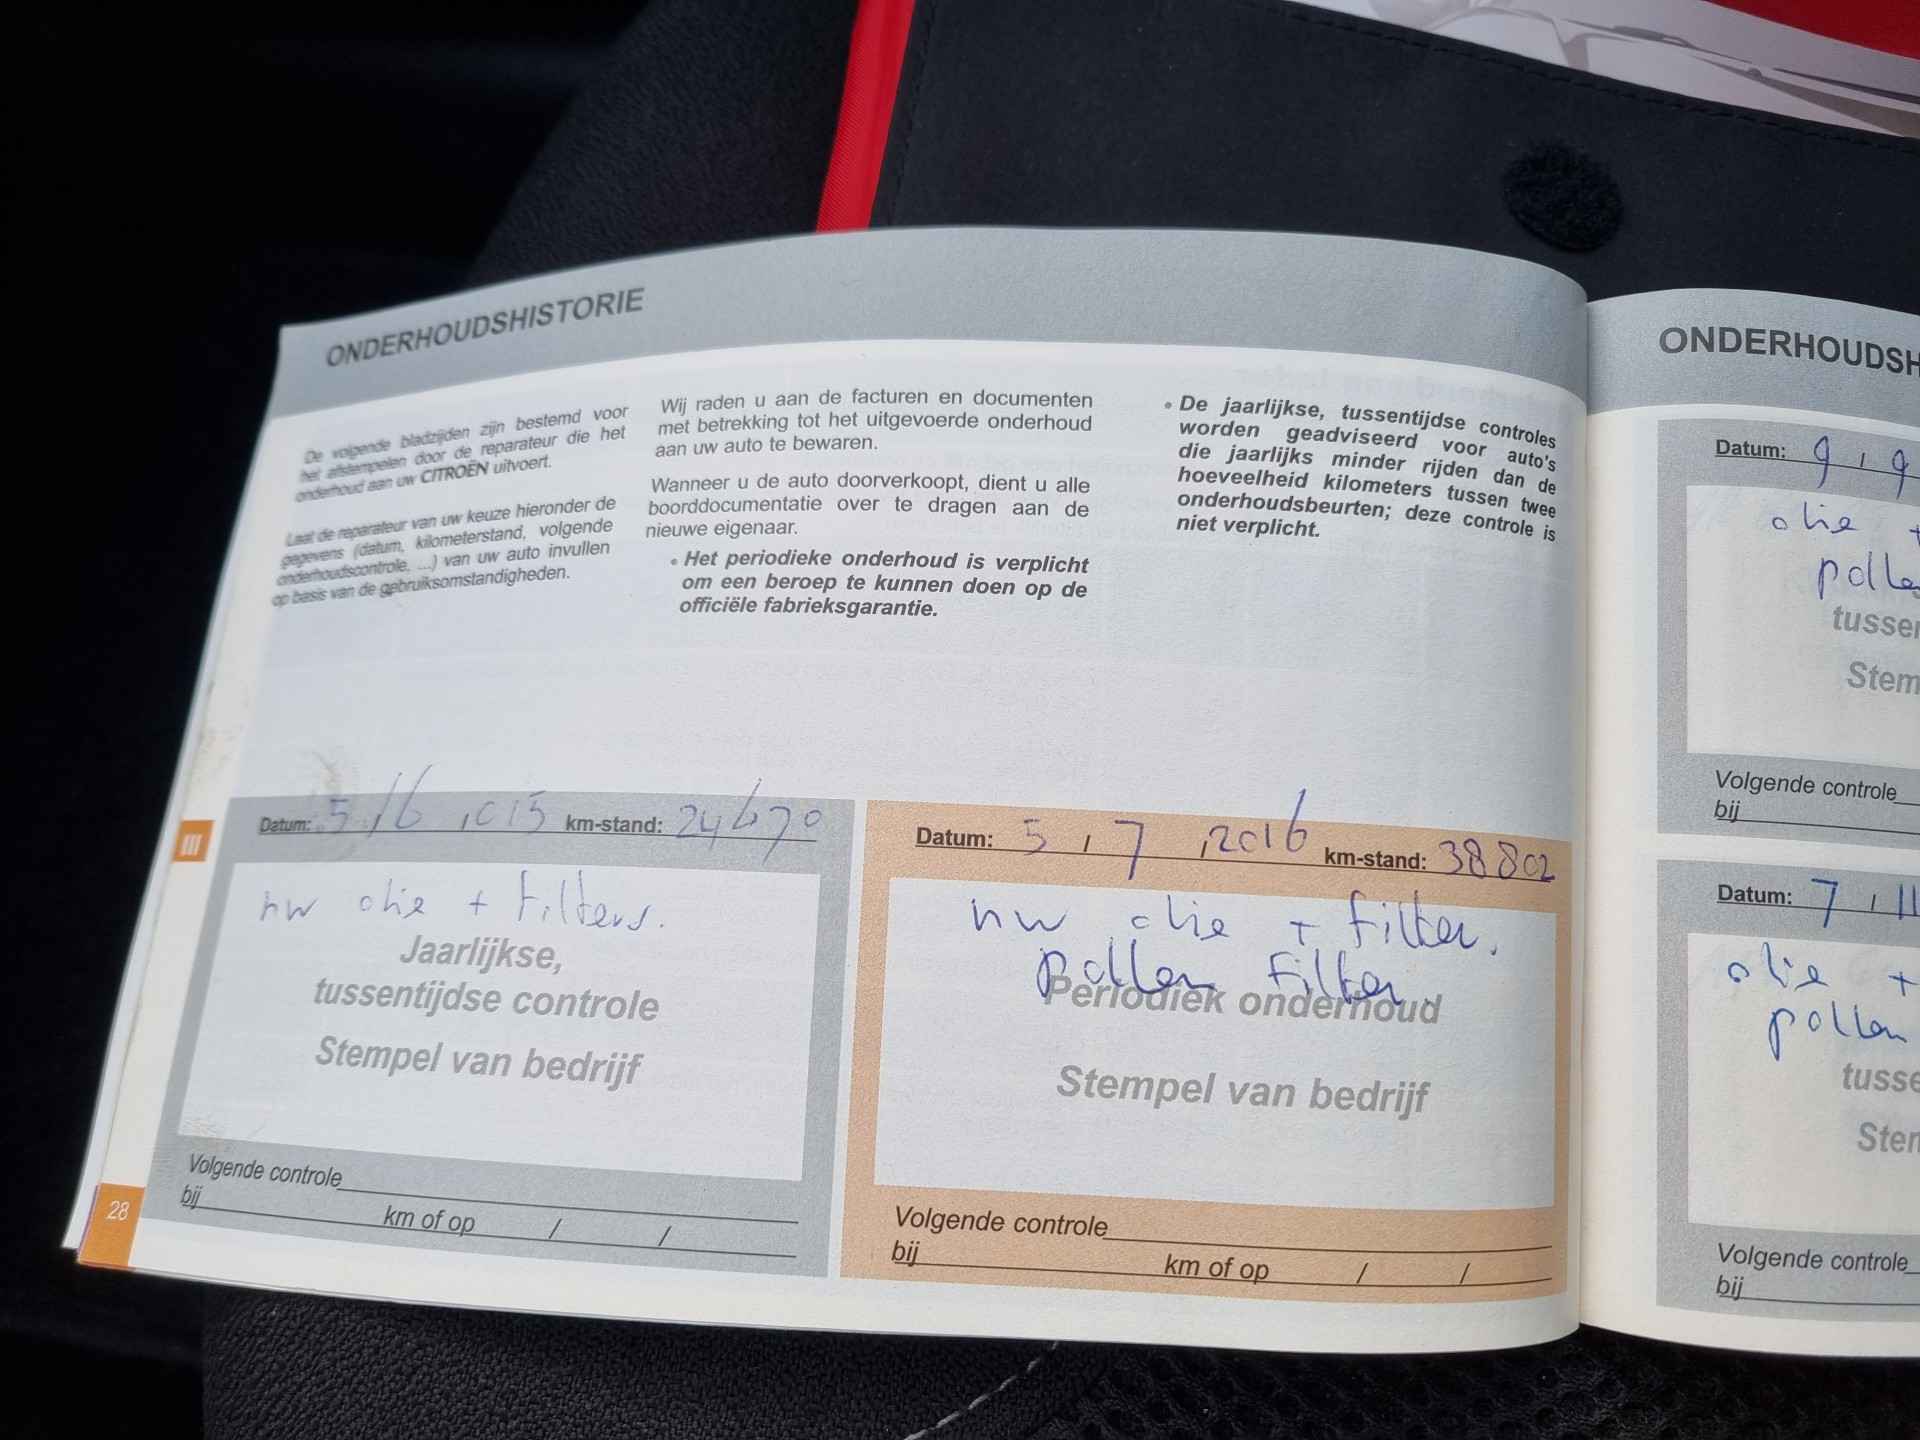 ONDERHOUDSHISTORIE
De volgende bladzijden zijn bestemd voor
het afstempelen door de reparateur die het
onderhoud aan uw CITROËN uitvoert.
Laat de reparateur van uw keuze hieronder de
gegevens (datum, kilometerstand, volgende
onderhoudscontrole, ...) van uw auto invullen
op basis van de gebruiksomstandigheden.
Wij raden u aan de facturen en documenten
met betrekking tot het uitgevoerde onderhoud
aan uw auto te bewaren.
Wanneer u de auto doorverkoopt, dient u alle
boorddocumentatie over te dragen aan de
nieuwe eigenaar.
• Het periodieke onderhoud is verplicht
om een beroep te kunnen doen op de
officiële fabrieksgarantie.
• De jaarlijkse, tussentijdse controles
worden geadviseerd voor auto's
die jaarlijks minder rijden dan de
hoeveelheid kilometers tussen twee
onderhoudsbeurten; deze controle is
niet verplicht.
Datum: 5 / 6 / 015 km-stand: 24670
nw olie + filters.
Jaarlijkse,
tussentijdse controle
Stempel van bedrijf
Volgende controle
bij km of op / /
Datum: 5 / 7 / 2016 km-stand: 38802
nw olie + filter.
pollen filter
Periodiek onderhoud
Stempel van bedrijf
Volgende controle
bij km of op / /
III
28
ONDERHOUDSH
Datum: 9 / 9
olie +
pollen
tussen
Stem
Volgende controle
bij
Datum: 7 / 11
olie +
pollen
tusse
Sten
Volgende controle
bij